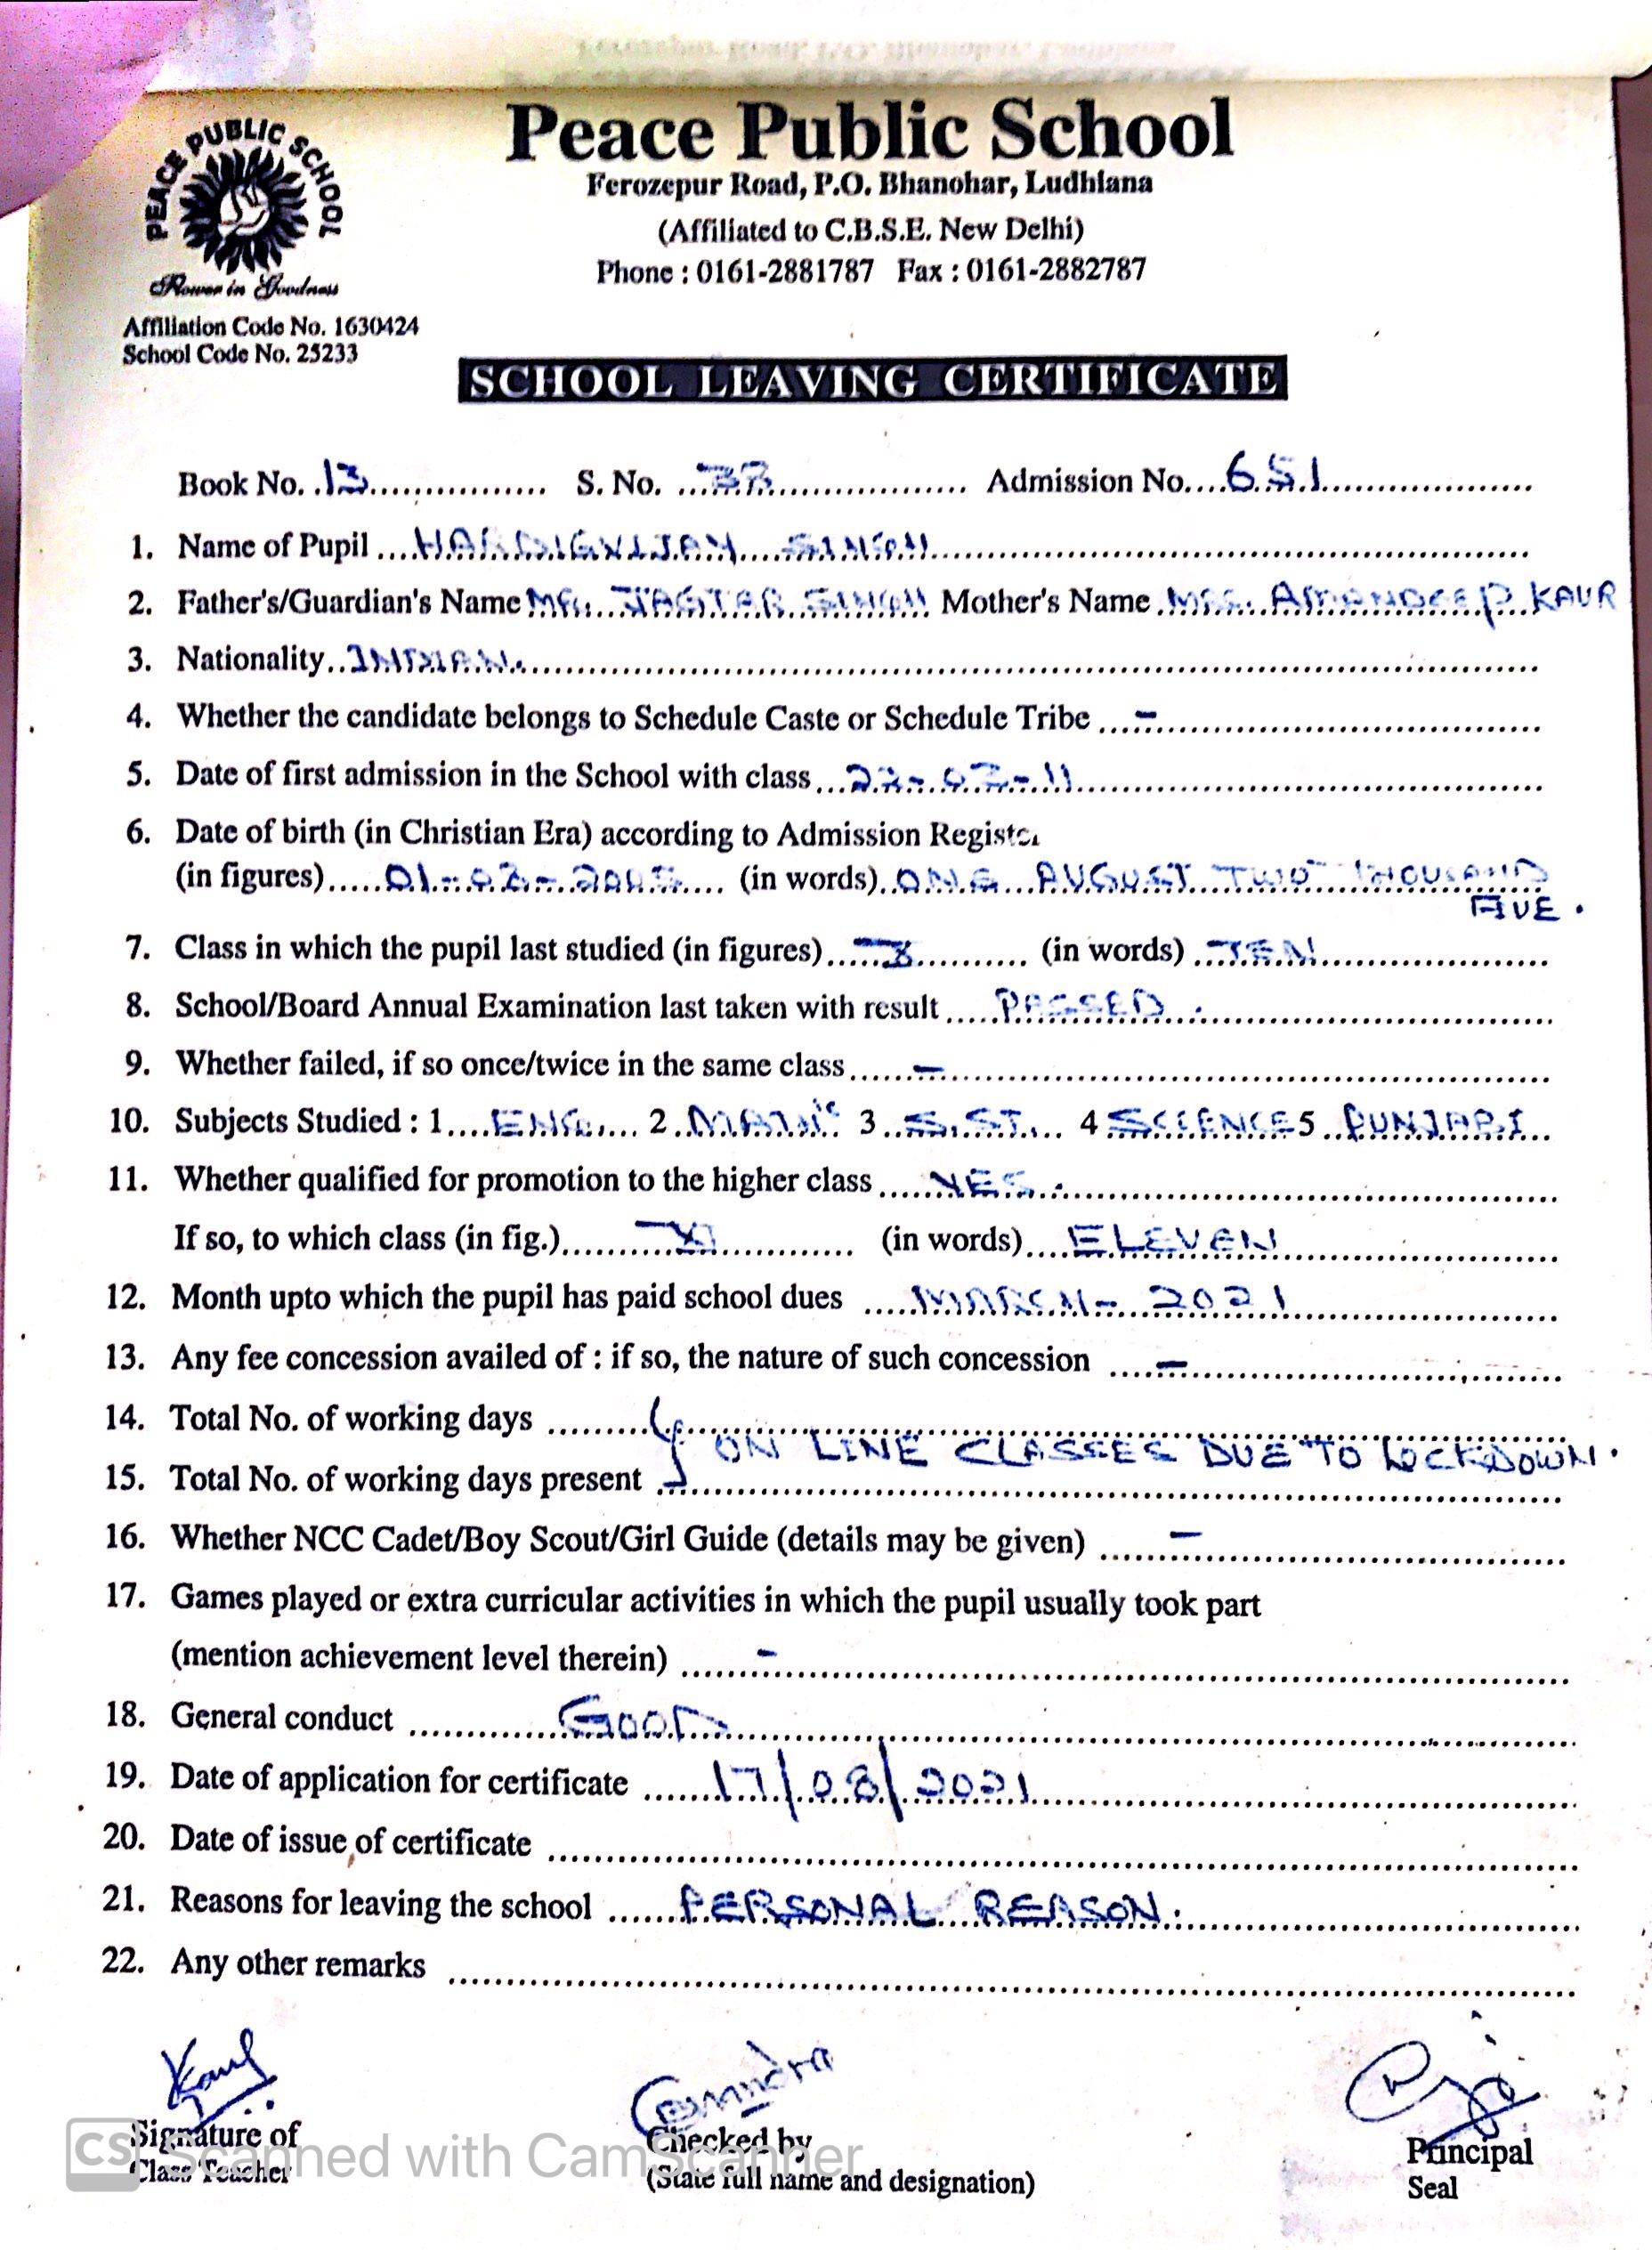 Peace Public School
PEACE PUBLIC SCHOOL
Ferozepur Road, P.O. Bhanohar, Ludhiana
(Affiliated to C.B.S.E. New Delhi)
Phone : 0161-2881787 Fax : 0161-2882787
Power in Goodness
Affiliation Code No. 1630424
School Code No. 25233
SCHOOL LEAVING CERTIFICATE
Book No. 13 S. No. Admission No. 651
1. Name of Pupil HARDIGVIJAY SINGH
2. Father's/Guardian's Name MR. JAGTAR SINGH Mother's Name MRS. AMANDEEP KAUR
3. Nationality INDIAN.
4. Whether the candidate belongs to Schedule Caste or Schedule Tribe -
5. Date of first admission in the School with class
6. Date of birth (in Christian Era) according to Admission Register
(in figures) 01-08-2005 (in words) ONE AUGUST TWO THOUSAND
FIVE.
7. Class in which the pupil last studied (in figures) X (in words) TEN
8. School/Board Annual Examination last taken with result PASSED.
9. Whether failed, if so once/twice in the same class -
10. Subjects Studied : 1 ENG. 2 MATHS 3 S.ST. 4 SCIENCE 5 PUNJABI
11. Whether qualified for promotion to the higher class YES.
If so, to which class (in fig.) XI (in words) ELEVEN
12. Month upto which the pupil has paid school dues MARCH - 2021
13. Any fee concession availed of : if so, the nature of such concession -
14. Total No. of working days
} ON LINE CLASSES DUE TO LOCKDOWN.
15. Total No. of working days present
16. Whether NCC Cadet/Boy Scout/Girl Guide (details may be given) -
17. Games played or extra curricular activities in which the pupil usually took part
(mention achievement level therein) -
18. General conduct GOOD
19. Date of application for certificate 17/08/2021
20. Date of issue of certificate
21. Reasons for leaving the school PERSONAL REASON.
22. Any other remarks
Kaur
Signature of
Class Teacher
Checked by
(State full name and designation)
Principal
Seal
CS Scanned with CamScanner